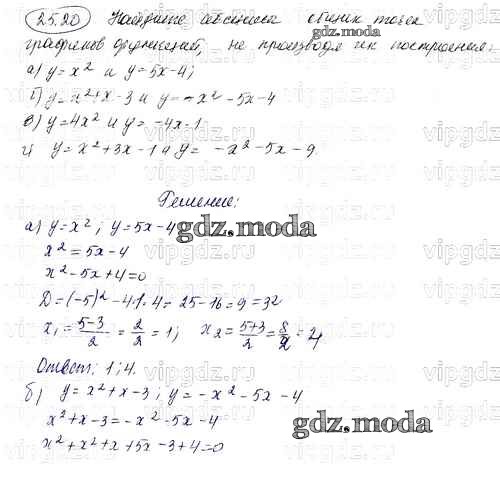 25.20 Найдите абсциссы общих точек
графиков функций, не производя их построения:
а) y = x² и y = 5x - 4;
б) y = x² + x - 3 и y = -x² - 5x - 4
в) y = 4x² и y = -4x - 1
г) y = x² + 3x - 1 и y = -x² - 5x - 9
Решение:
а) y = x²; y = 5x - 4
gdz.moda
x² = 5x - 4
x² - 5x + 4 = 0
D = (-5)² - 4·1·4 = 25 - 16 = 9 = 3²
x₁ = (5-3)/2 = 2/2 = 1; x₂ = (5+3)/2 = 8/2 = 4
Ответ: 1; 4.
б) y = x² + x - 3; y = -x² - 5x - 4
x² + x - 3 = -x² - 5x - 4
gdz.moda
x² + x² + x + 5x - 3 + 4 = 0